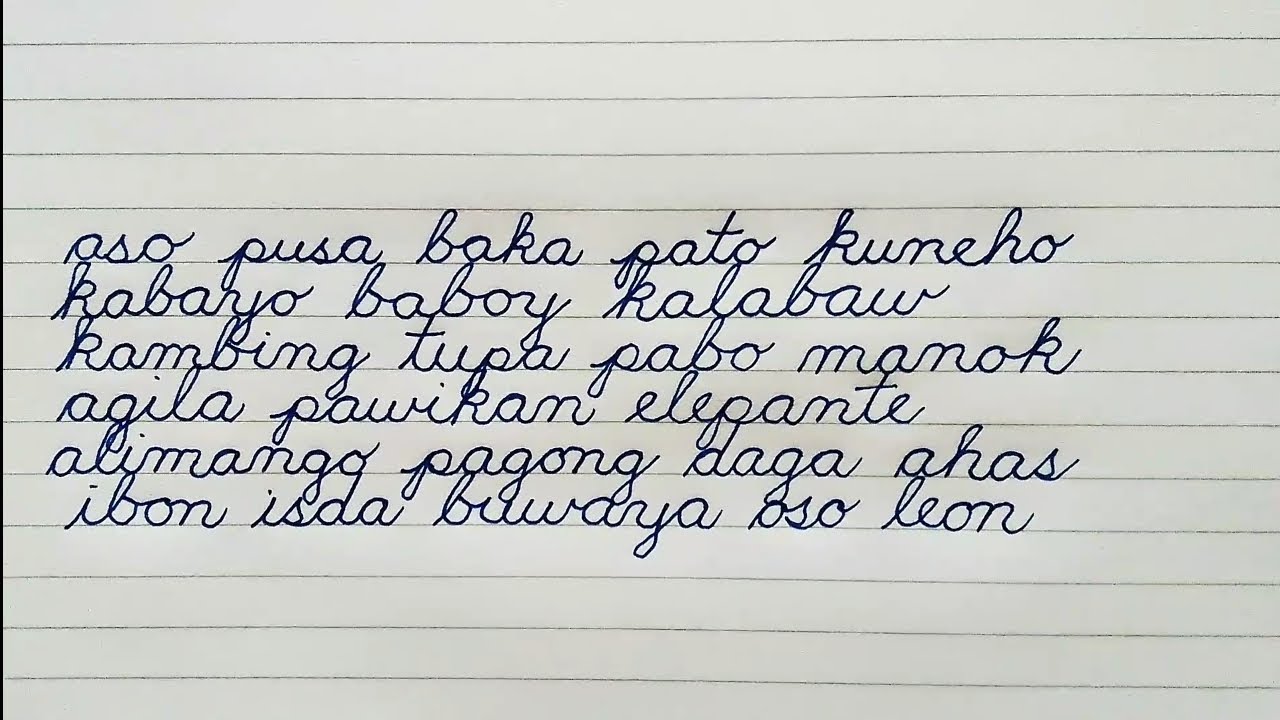 aso pusa baka pato kuneho
kabayo baboy kalabaw
kambing tupa pabo manok
agila pawikan elepante
alimango pagong daga ahas
ibon isda buwaya oso leon